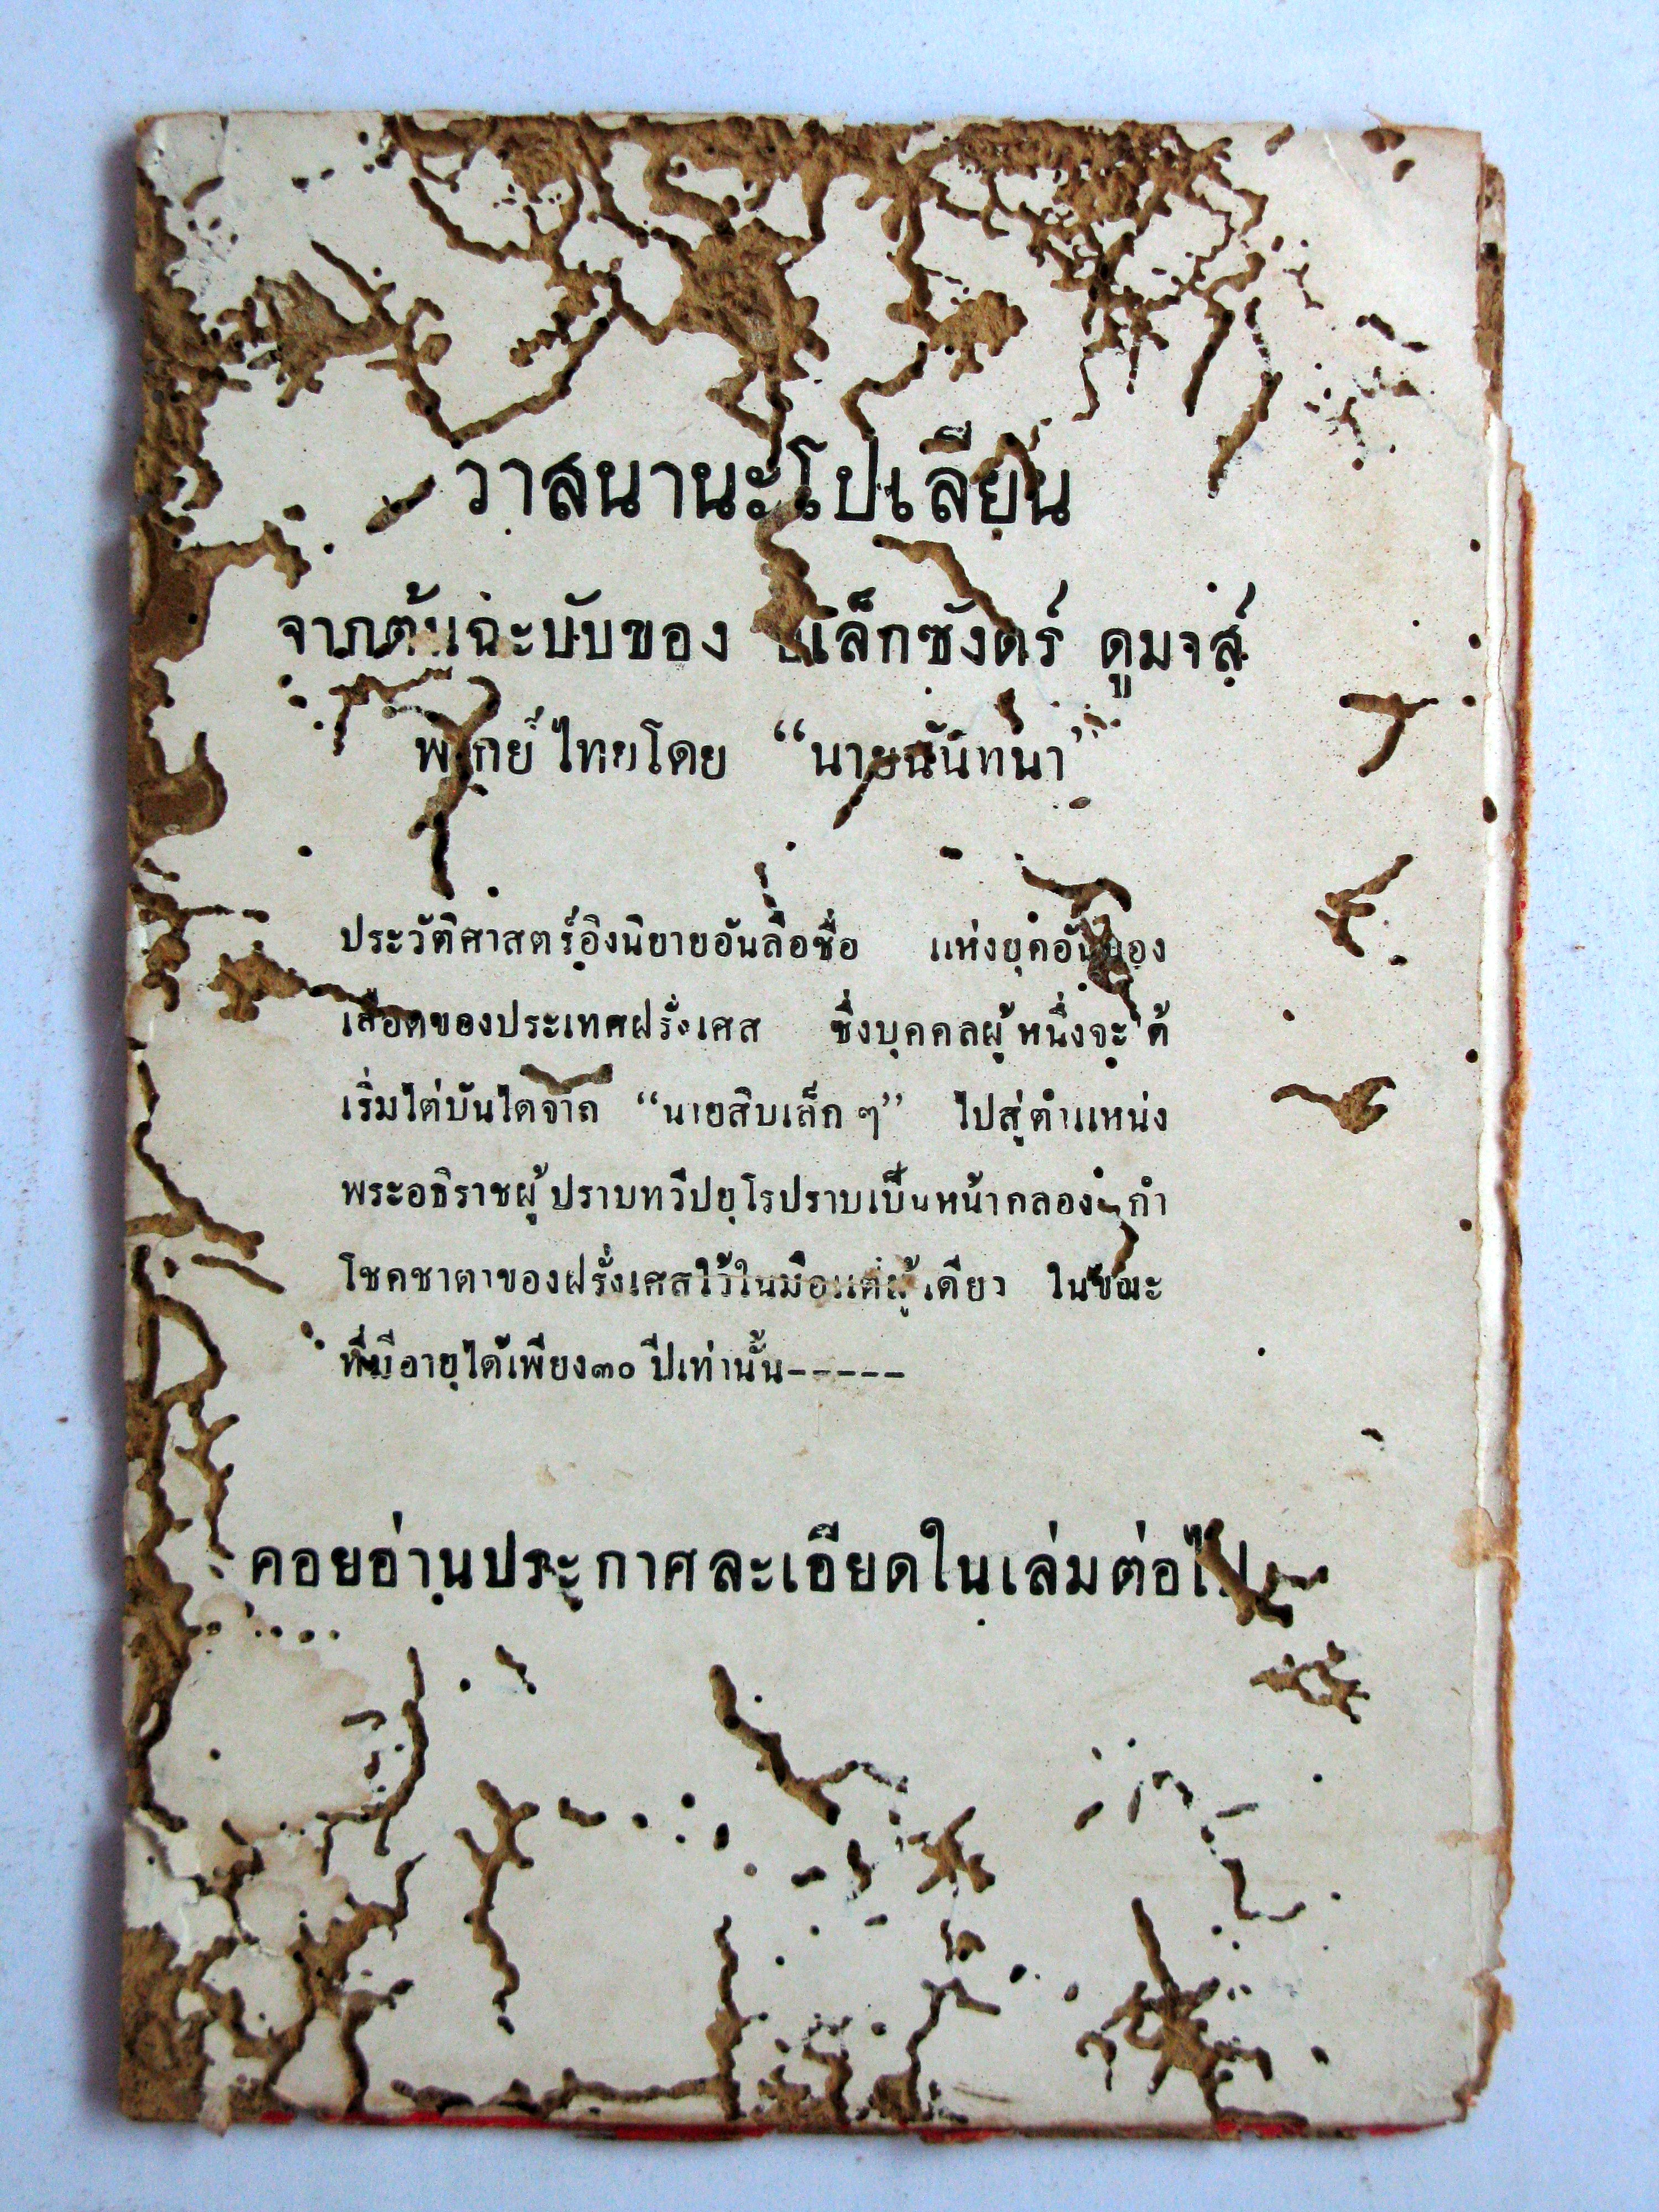 วาสนานะโปเลียน
จากต้นฉะบับของ อเล็กซังดร์ ดูมจส์
พากย์ไทยโดย “นายฉันทนา”
ประวัติศาสตร์อิงนิยายอันลือชื่อ แห่งยุคอันนอง
เลือดของประเทศฝรั่งเศส ซึ่งบุคคลผู้หนึ่งจะได้
เริ่มไต่บันไดจาก “นายสิบเล็ก ๆ” ไปสู่ตำแหน่ง
พระอธิราชผู้ปราบทวีปยุโรปราบเป็นหน้ากลอง กำ
โชคชาตาของฝรั่งเศสไว้ในมือแต่ผู้เดียว ในขณะ
ที่มีอายุได้เพียง ๓๐ ปีเท่านั้น-----
คอยอ่านประกาศละเอียดในเล่มต่อไป